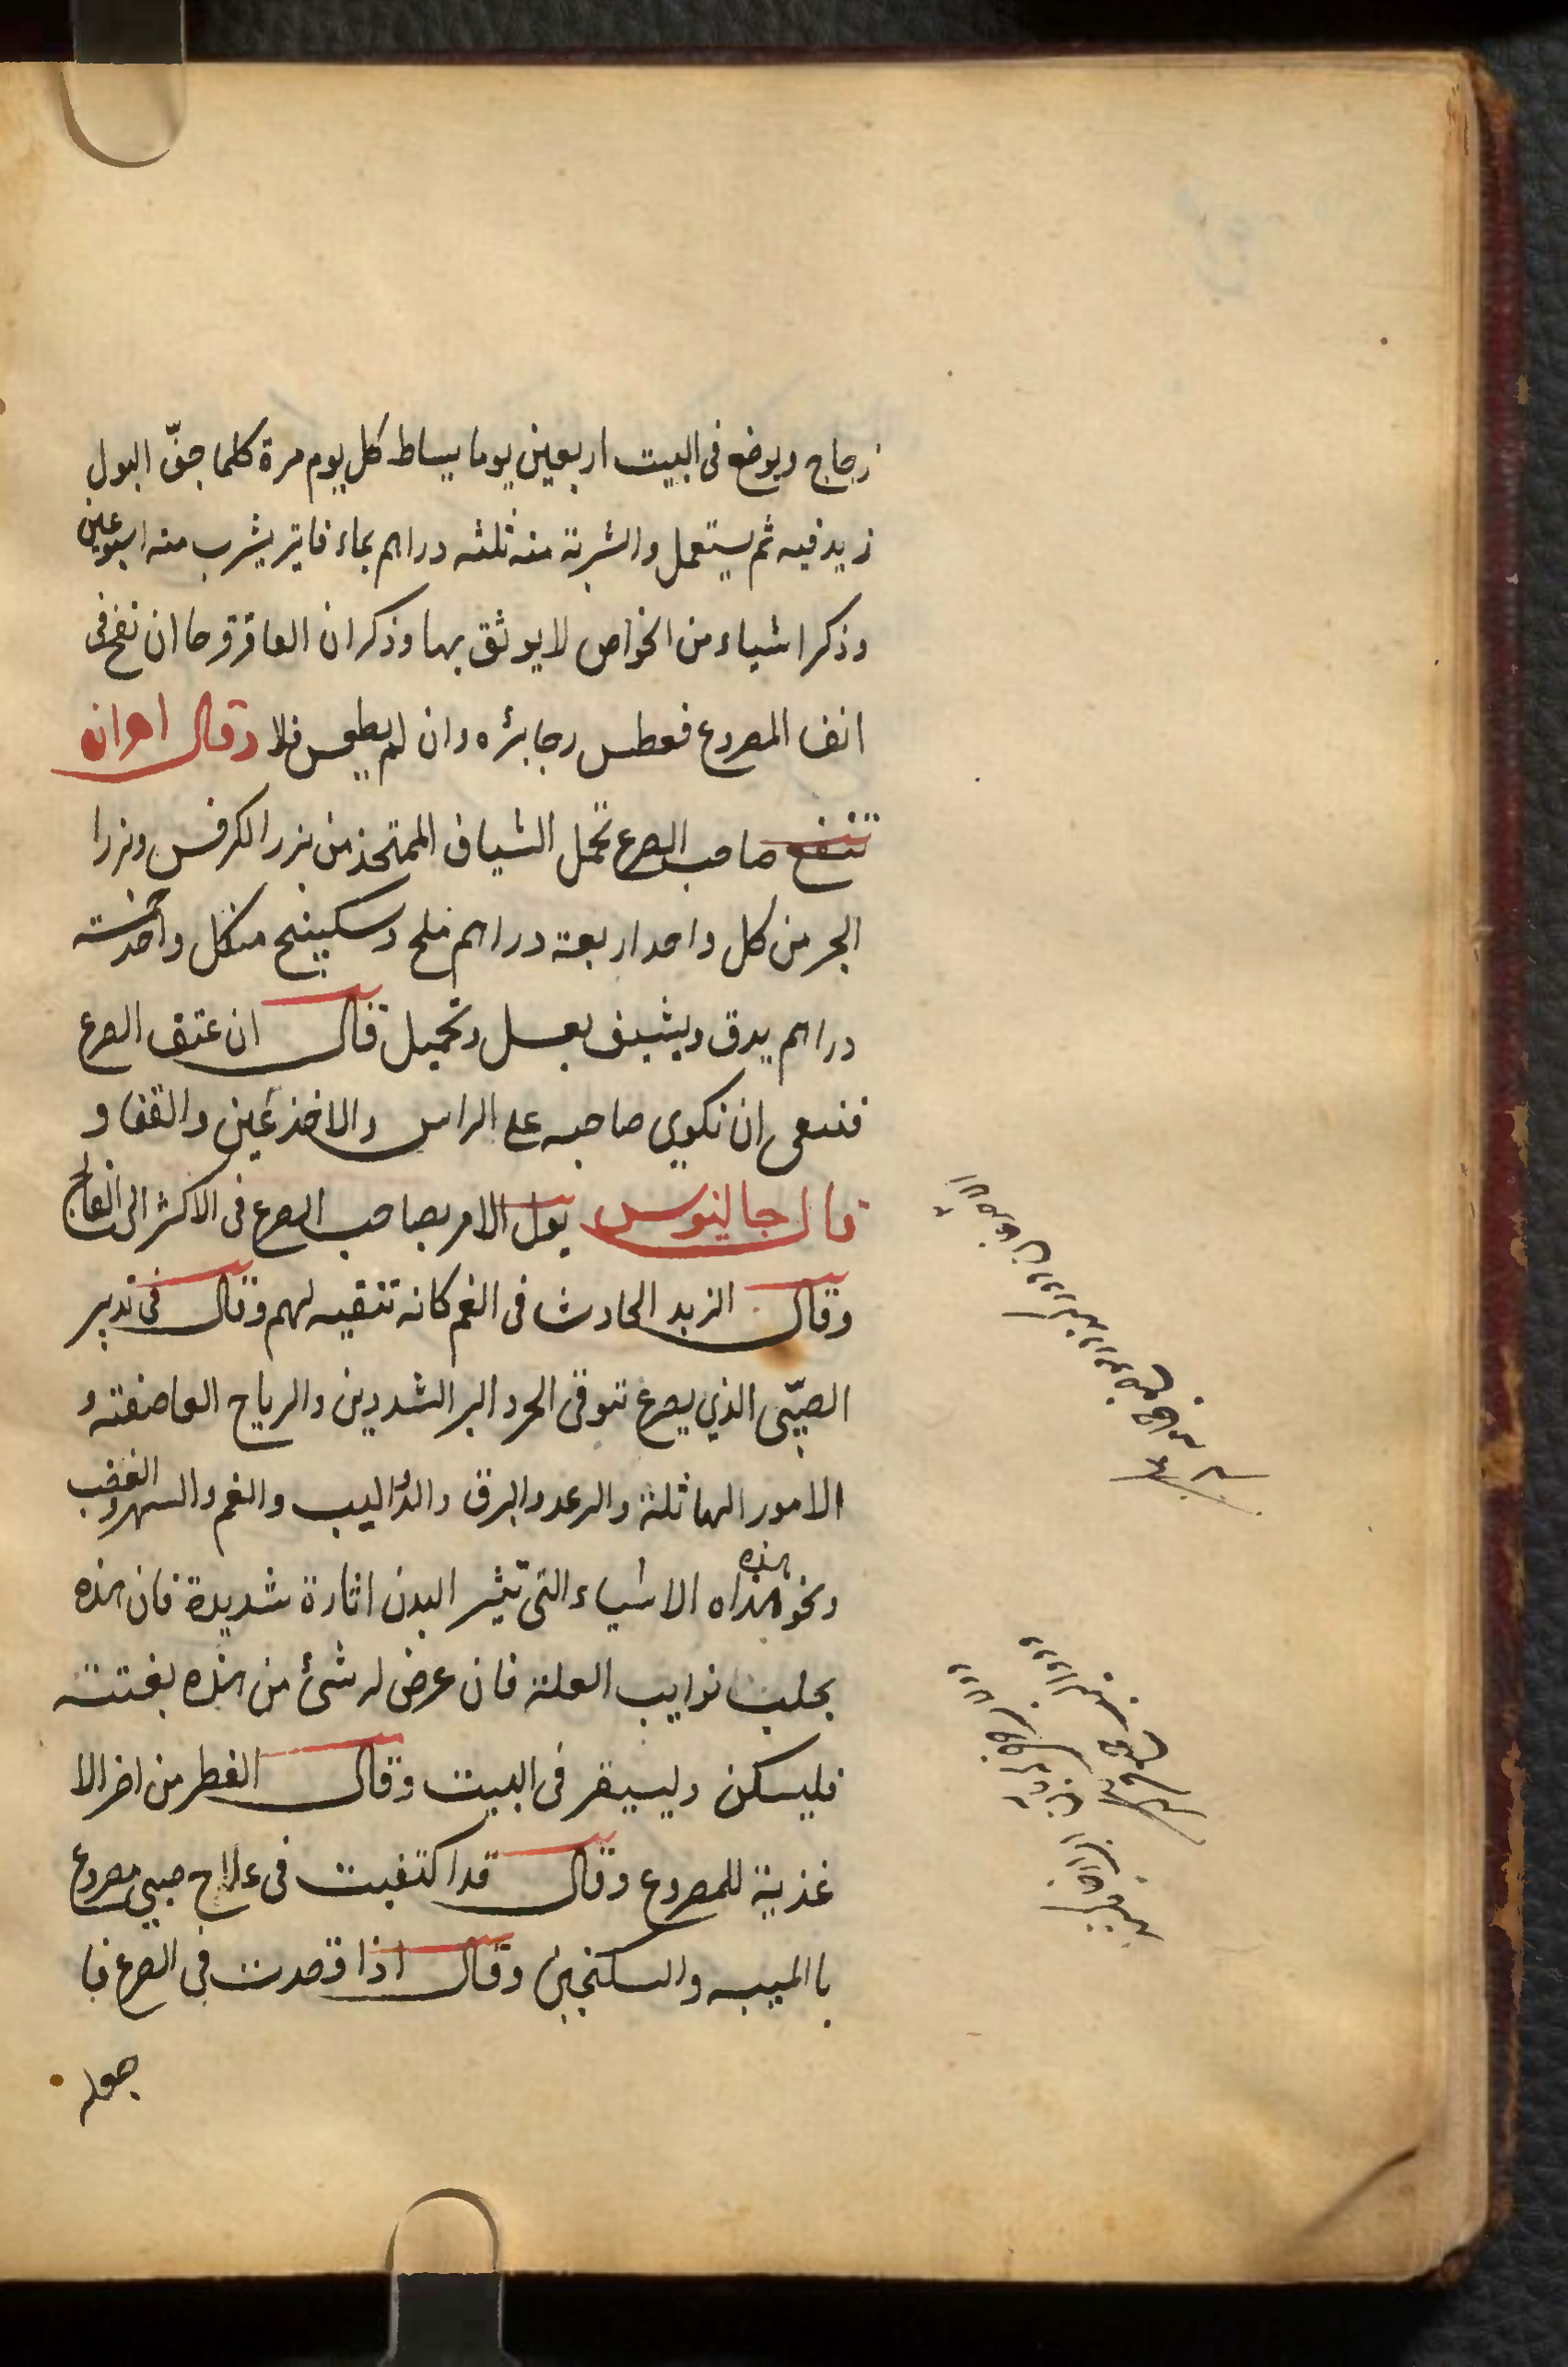 زجاج ويوضع فى البيت اربعين يوما يساط كل يوم مرة كلما جفّ البول
زيد فيه ثم يستعمل والشربة منه ثلثه دراهم بماء فاتر يشرب منه اسبوعين
وذكر اشياء من الخواص لا يوثق بها وذكر ان العاقرقرحا ان نفخ فى
انف المصروع فعطس رجا برؤه وان لم يعطس فلا وقال اهرن
تنفع صاحب الصرع تحمل الشياف المتخذ من بزر الكرفس وبزرا
الجر من كل واحد اربعة دراهم ملح وسكبينج من كل واحد ستة
دراهم يدق ويشيف بعسل وتحميل قال ان عتق الصرع
فينبغى ان نكوى صاحبه على الراس والاخذعين والقفا و
قال جالينوس يول الامر بصاحب الصرع فى الاكثر الى الفالج
وقال الزبد الحادث فى الفم كانه تنقيه لهم وقال فى تدبير
الصبّى الذي يصرع تتوقى الحر والبر الشديدين والرياح العاصفته و
الامور الهائلة والرعد والبرق والدواليب والغم والسهر والغضب
ونحو هذاه هذه الاشياء التى تثير البدن اثارة شديدة فان هذه
بجلب نوايب العلة فان عرض له شئ من هذه بغتتة
فليسكن وليستقر فى البيت وقال الفطر من اضر الا
غذية للمصروع وقال قد اكتفيت فى علاج صبي مصروع
باالميبه والسكنجبين وقال اذا قصدت فى الصرع فا
جعله